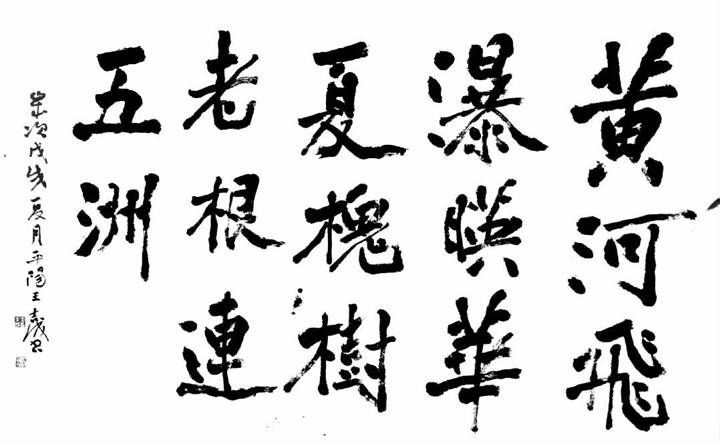 黄河飛
瀑暎華
夏槐樹
老根連
五洲
岁次戊戌夏月平陽王